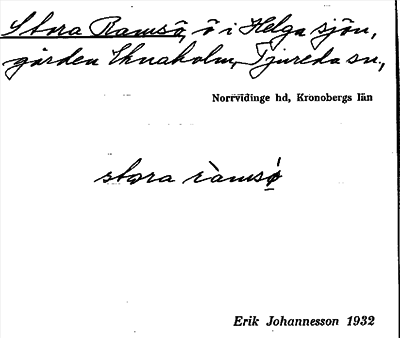 Stora Ramsö, ö i Helga sjön,
gården Eknaholm, Tjureda sn,
Norrvidinge hd, Kronobergs län
stora ràmsø
Erik Johannesson 1932